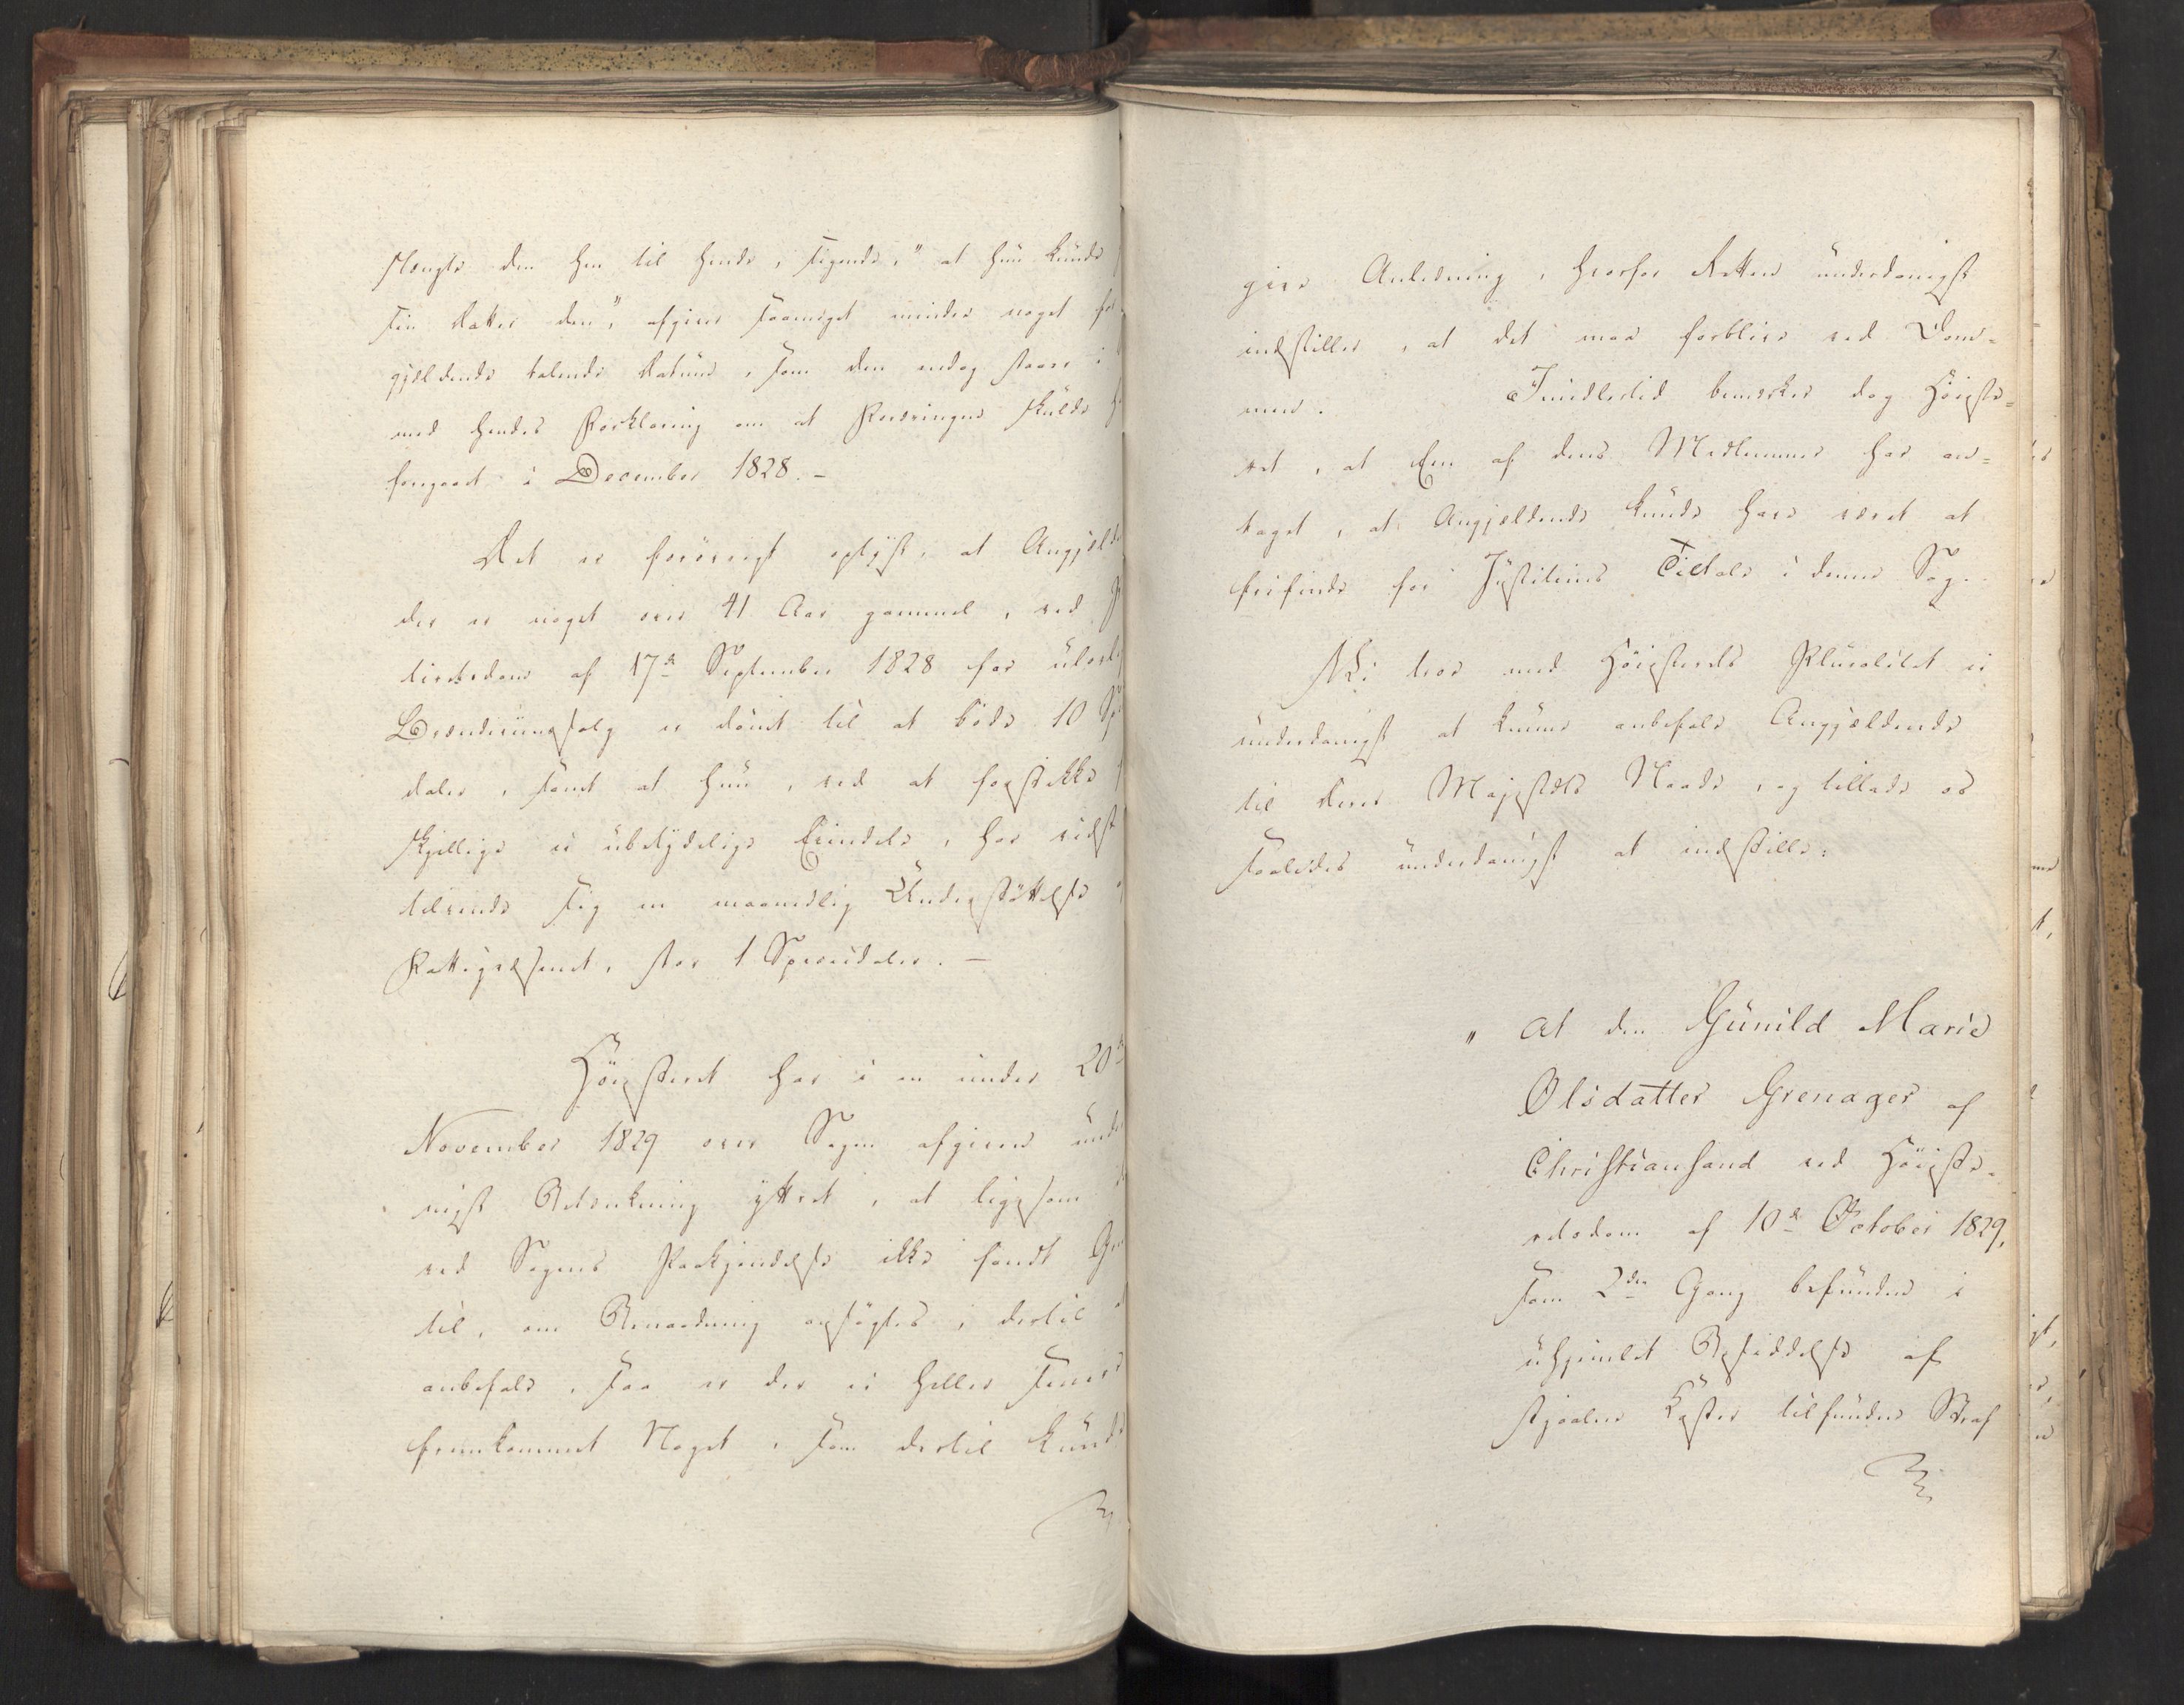 slængte den hen til hende, sigende, "at hun kunde
sin Datter den", afgiver saameget mindre noget for
gjældende talende Datum, som den endog staaer i
med hendes Forklaring om at Foræringen skulde
foregaaet i December 1828. –
Det er forøvrigt oplyst, at Angjæld
der er noget over 41 Aar gammel, ved
tiretsdom af 17de September 1828 for ulovlig
Brændeviinssalg er dømt til at bøde 10 Sp
daler, samt at hun, ved at forstikke
skjellige ei ubetydelige Eiendele, har vidst
tilvende sig en maanedlig Understøttelse
Fattigvæsenet, stor 1 Speciedaler. –
Høiesteret har i en under 20de
November 1829 over Sagen afgiven under
nigst Betænkning yttret, at ligesom
ved Sagens Paakjendelse ikke fandt Gr
til, om Benaadning ansøgtes, dertil
anbefale, saa er der ei heller senere
fremkommet Noget, som dertil kunde
give Anledning, hvorfor Retten underdanigst
indstiller, at det maa forblive ved Dom=
men. Imidlertid bemærker dog Høieste=
ret, at Een af dens Medlemmer har an=
taget, at Angjældende kunde have været at
frifinde for Justitiens Tiltale i denne Sag. –
Vi troe med Høiesterets Pluralitet ei
underdanigst at kunne anbefale Angjældende
til Deres Majestæts Naade, og tillade os
saaledes underdanigst at indstille:
" at den Gunild Marie
Olsdatter Grenager af
Christiansand ved Høieste=
retsdom af 10de October 1829,
som 2den Gang befunden i
uhjemlet Besiddelse af
stjaalne Koster tilfundne Straf